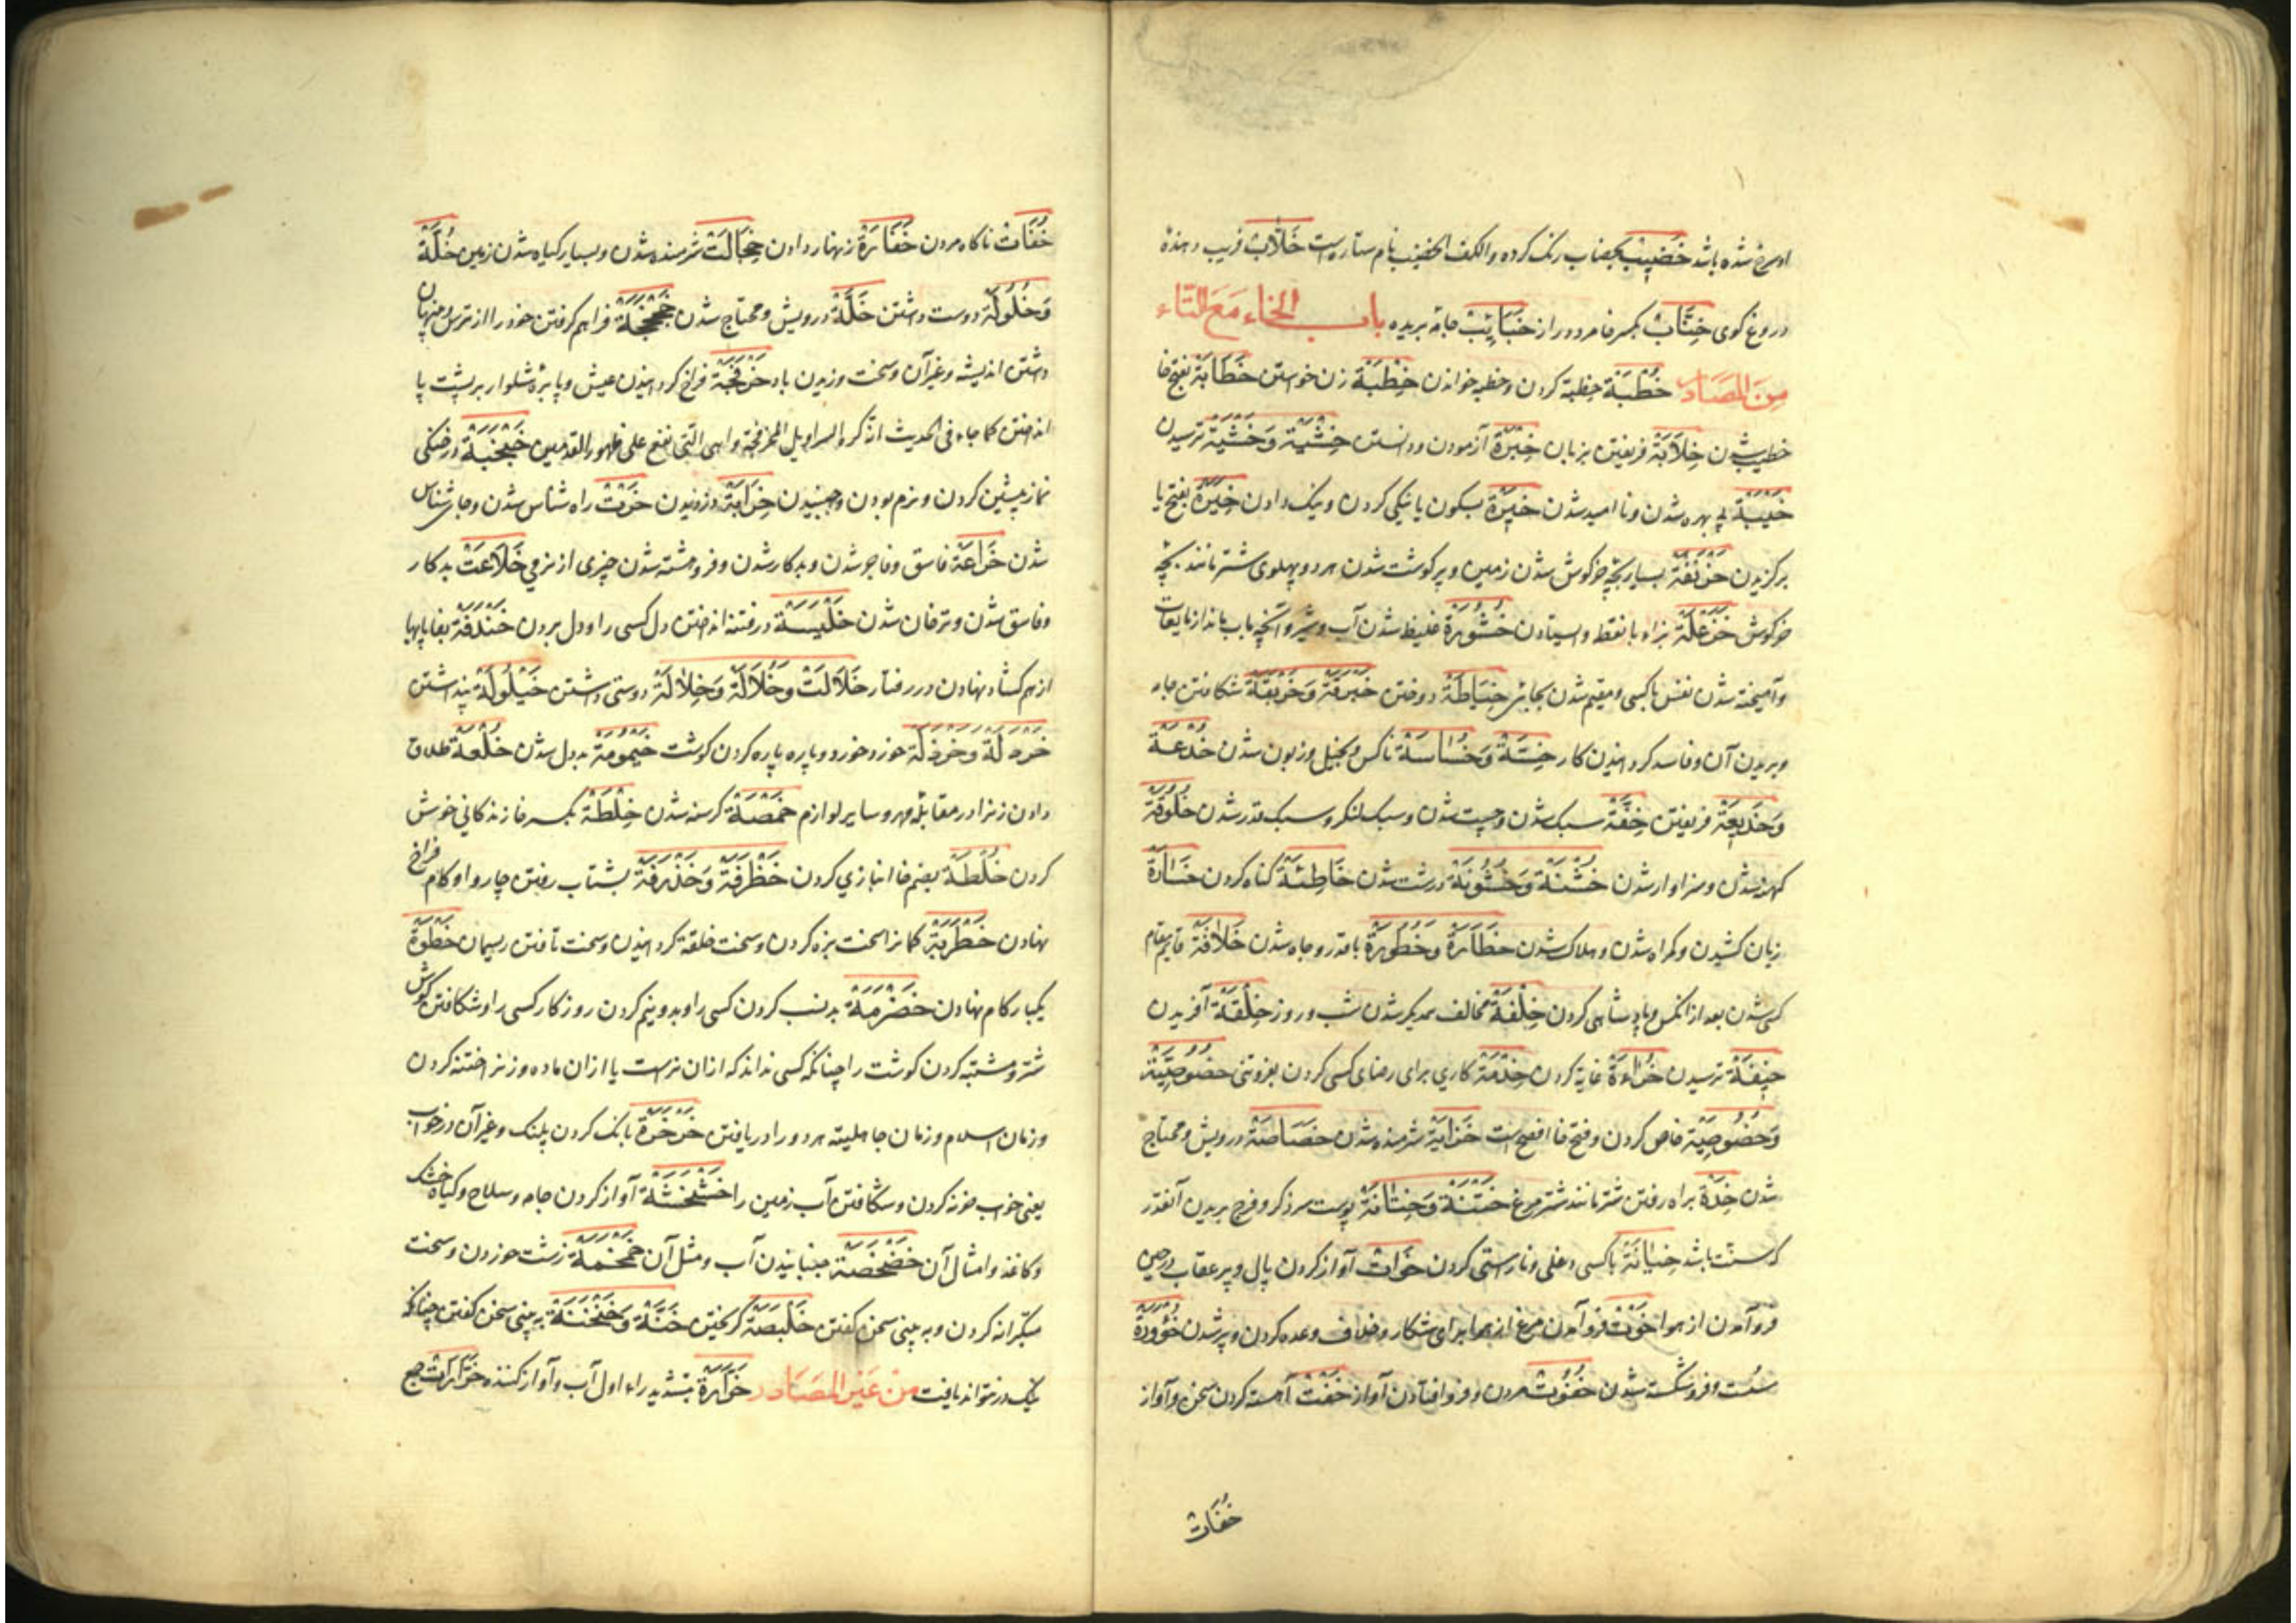 او سرخ شده باشد خَضِيبْ بخضاب رنک کرده والکف الخضیب نام ستاره است خَلَّابْ فریب دهنده
دروغ کوی خِنَّابْ بکسر خا مرد دراز خَبَائِبْ جامهٔ بریده باب الخاء مَعَ التّاء
مِنَ المَصَادر خُطْبَةْ خطبة کردن وخطبه خواندن خِطْبَةْ زن خواستن خَطَابَةْ بفتح خا
خطیب شدن خِلَابَةْ فریفتن بزبان خِبْرَةْ آزمودن ودانستن خِشْيَةْ وَخَشْيَةْ ترسیدن
خَيْبَةْ بی بهره شدن ونا امید شدن خَيْرَةْ بسکون یا نیکی کردن ونیک دادن خِيَرَةْ بفتح یا
برکزیدن خَرْنَقَةْ بسیار بچهٔ خرکوش شدن زمین وپر کوشت شدن هر دو پهلوی شتر مانند بچهٔ
خرکوش خَزْعَلَةْ بزاء با نقطه وایستادن خُثُورَةْ غلیظ شدن آب وشیر وآنچه باب ماند از مایعات
وآمیخته شدن نفس با کسی ومقیم شدن بجایی خِيَاطَةْ دوختن خَبْرَقَةْ وَخَرْبَقَةْ شکافتن جامه
وبریدن آن وفاسد کردانیدن کار خِسَّةْ وَخَسَاسَةْ ناکس وبخیل وزبون شدن خُدْعَةْ
وَخَدِيعَةْ فریفتن خِفَّةْ سبک شدن وچست شدن وسبک لنکر وسبک قدر شدن خُلُوقَةْ
کهنه شدن وسزاوار شدن خُشْنَةْ وَخُشُونَةْ درشت شدن خَاطِئَةْ کناه کردن خَسَارَةْ
زیان کشیدن وکمراه شدن وهلاک شدن خَطَارَةْ وَخُطُورَةْ با قدر وجاه شدن خِلَافَةْ قایم مقام
کسی شدن بعد از آنکس وپادشاهی کردن خِلْفَةْ مخالف همدیکر شدن شب وروز خِلْقَةْ آفریدن
خِيفَةْ ترسیدن خُرَاءَةْ غایة کردن خِدْمَةْ کاری برای رضای کسی کردن بفروتنی خُصُوصِيَّةْ
وَخَصُوصِيَّةْ خاص کردن وفتح خا افصح است خَزَايَةْ شرمنده شدن خَصَاصَةْ درویش ومحتاج
شدن خِدَّةْ براه رفتن شتر مانند شتر مرغ خَتْنَةْ وَخِتَانَةْ پوست سر ذکر وفرج بریدن آنقدر
که سنت باشد خِيَانَةْ با کسی دغلی وناراستی کردن خَوَاتْ آواز کردن بال وپر عقاب در حین
فرو آمدن از هوا خَوْتْ فرو آمدن مرغ از هوا برای شکار وخلاف وعده کردن وپیر شدن خُؤُودَةْ
سست وفرو شکسته شدن خُفُوتْ مردن وفرو افتادن آواز خَفْتْ آهسته کردن سخن وآواز
خُفَاتْ
خُفَاتْ ناکاه مردن خَفَارَةْ زنهار دادن خِجَالَتْ شرمنده شدن وبسیار کیاه شدن زمین خُلَّةْ
وَخُلُولَةْ دوست داشتن خَلَّةْ درویش ومحتاج شدن خَجْخَجَةْ فراهم کرفتن خود را از ترس وپنهان
داشتن اندیشه وغیر آن وسخت وزیدن باد خَرْفَجَةْ فراخ کردانیدن عیش وپاچهٔ شلوار بر پشت پا
انداختن کما جاء فی الحدیث انه کره السراویل المخرفجة وهی التی تقع علی ظهور القدمین خَبْخَبَةْ در خنکی
نماز پیشین کردن ونرم بودن وجنبیدن خِرَابَةْ دزدیدن خَرْتْ راه شناس شدن وجای شناس
شدن خَرَاعَةْ فاسق وفاجر شدن وبدکار شدن وفرو هشته شدن چیزی از نرمی خَلَاعَتْ بدکار
وفاسق شدن وترخان شدن خَلْبَسَةْ در فتنه انداختن دل کسی را ودل بردن خَنْدَفَةْ بفا پایها
از هم کشاد نهادن در رفتار خَلَالَتْ وَخُلَالَةْ وَخِلَالَةْ دوستی داشتن خَيْلُولَةْ پنداشتن
خَرْدَلَةْ وَخَرْذَلَةْ خورد خورد وپاره پاره کردن کوشت خَيْمُومَةْ بد دل شدن خُلْعَةْ طلاق
دادن زنرا در مقابلهٔ مهر وسایر لوازم خَمْصَةْ کرسنه شدن خِلْطَةْ بکسر خا زندکانی خوش
کردن خُلْطَةْ بضم خا انبازي کردن خَظْرَفَةْ وَخَذْرَفَةْ بشتاب رفتن چاروا وکام فراخ
نهادن خَطْرَبَةْ کمانرا سخت بزه کردن وسخت خلقة کردانیدن وسخت تافتن ریسمان خَطْوَةْ
یکبار کام نهادن خَضْرَمَةْ بد نسب کردن کسی را وبدو نیم کردن روزکار کسی را وشکافتن کوش
شتر ومشتبه کردن کوشت را چنانکه کسی نداند که از ان نر است یا از ان ماده وزنرا ختنه کردن
وزمان اسلام وزمان جاهلیت هر دو را دریافتن خَرْخَرَةْ بانک کردن پلنک وغیر آن در خواب
یعنی خواب خره کردن وشکافتن آب زمین را خَشْخَشَةْ آواز کردن جامه وسلاح وکیاه خشک
وکاغذ وامثال آن خَضْخَضَةْ جنبانیدن آب ومثل آن خَمْخَمَةْ زشت خوردن وسخت
متکبرانه کردن وبه بینی سخن کفتن خَلْبَصَةْ کریختن خَنَّةْ وَخَنْخَنَةْ به بینی سخن کفتن چنانکه
نیک در نتواند یافت مِن غَيرِ المَصَادر خَرَّارَةْ بتشدید راء اول آب وآواز کننده خَرَّارَاتْ جمع